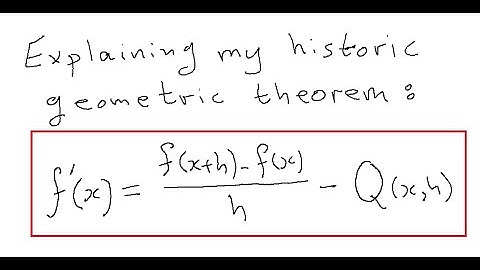 Explaining my historic
geometric theorem:
f'(x) = f(x+h) - f(x) / h - Q(x,h)